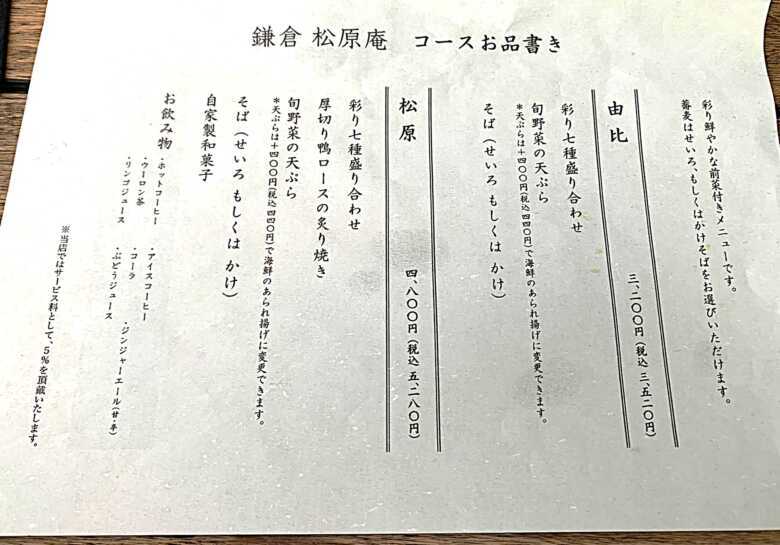 鎌倉 松原庵 コースお品書き
彩り鮮やかな前菜付きメニューです。
蕎麦はせいろ、もしくはかけそばをお選びいただけます。
由比
三、二〇〇円(税込 三、五二〇円)
彩り七種盛り合わせ
旬野菜の天ぷら
*天ぷらは+四〇〇円(税込 四四〇円)で海鮮のあられ揚げに変更できます。
そば(せいろ もしくは かけ)
松原
四、八〇〇円(税込 五、二八〇円)
彩り七種盛り合わせ
厚切り鴨ロースの炙り焼き
旬野菜の天ぷら
*天ぷらは+四〇〇円(税込 四四〇円)で海鮮のあられ揚げに変更できます。
そば(せいろ もしくは かけ)
自家製和菓子
お飲み物
・ホットコーヒー ・アイスコーヒー ・ジンジャーエール(甘・辛)
・ウーロン茶 ・コーラ
・リンゴジュース ・ぶどうジュース
※当店ではサービス料として、5%を頂戴いたします。